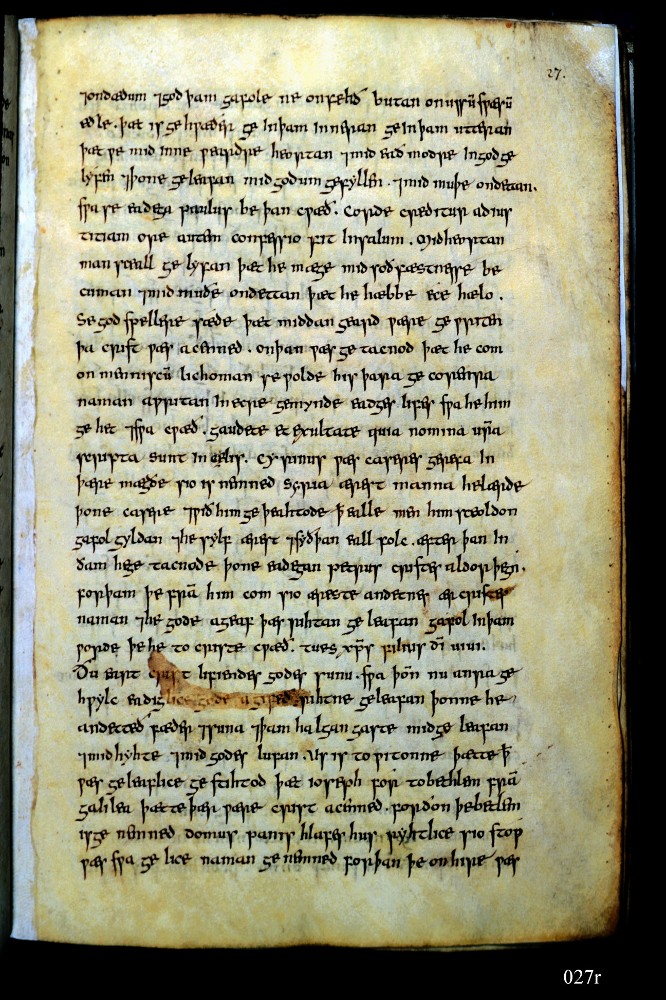 27.
⁊ondædum ⁊god þam gafole ne onfehð butan on urū fæꝛū
eðle. þæt is gehwæðer ge in þam inneran ge in þam utteran
þæt we mid inne weardre heortan ⁊mid ead modre in god ge
lyfen ⁊þone geleafan mid godum gefyllen. ⁊mid muþe ondetan.
swa se eadega paulus be þan cwæð. Corde creditur ad ius
titiam ore autem confessio fit in salutem. Mid heortan
man sceall ge lyfan þæt he mæge mid soðfæstnesse be
cuman ⁊mid muðe ondettan þæt he hæbbe ece hælo.
Se godspellere sæde þæt middan geard wære ge writen
þa crist wæs acenned. on þan wæs ge tacnod þæt he com
on menniscū lichoman se þe wolde his þara ge corenra
naman awritan in ecre gemynde eadges lifes swa he him
ge het ⁊swa cwæð. gaudete et exultate quia nomina ur̄a
scripta sunt in celis. Cyrinus wæs caseres gerefa in
þære mægðe sio is nenned Syria ærest manna he lærde
þone casere ⁊wið him ge þeahtode ꝥ ealle men him sceoldon
gafol gyldan ⁊he sylf ærest ⁊syðþan eall folc. æfter þan in
ðam he ge tacnode þone eadegan petrus cristes aldor þegn.
forþam þe frā him com sio æreste andetnes ær cristes
naman ⁊he gode ageaf þæs rihtan ge leafan gafol in þam
worde þe he to criste cwæð. tu es xp̄s filius dī uiui.
Ðu eart crist lifiendes godes sunu. swa þōn nu anra ge
hwylc eadiglice gode agifeð rihtne geleafan þonne he
andetteð fæder ⁊suna ⁊þam halgan gaste mid ge leafan
⁊mid hyhte ⁊mid godes lufan. Us is to witonne þætte ꝥ
wæs geleaflice ge stihtod þæt ioseph for to bethlem frā
galilea þætte þær wære crist acenned. for ðon þe bethlem
is ge nenned domus panis hlafes hus ryhtlice sio stow
wæs swa ge lice naman ge nenned forþan þe on hire wæs
027r